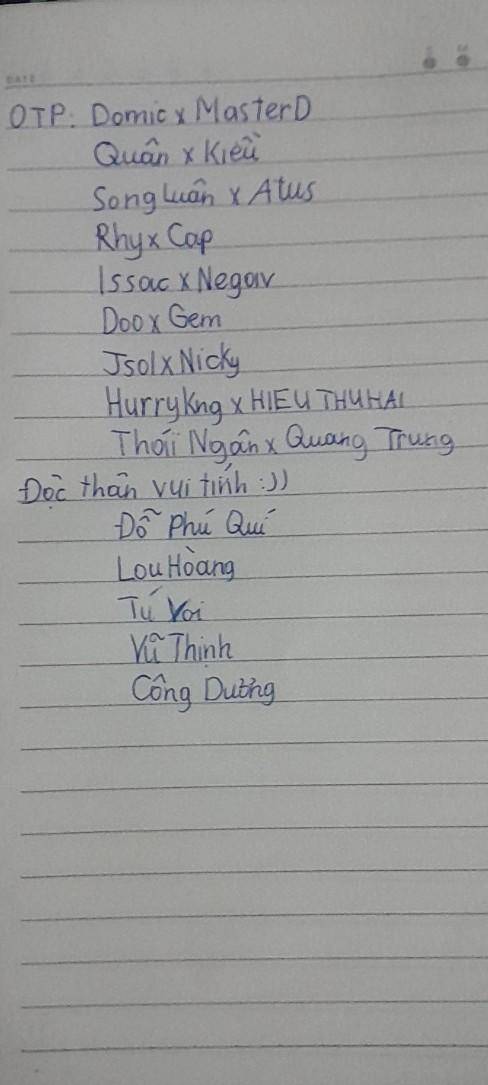 DATE
OTP: Domic x MasterD
Quân x Kiều
Song Luân x Atus
Rhy x Cap
Issac x Negav
Doo x Gem
Jsol x Nicky
HurryKng x HIEUTHUHAI
Thái Ngân x Quang Trung
Độc thân vui tính :))
Đỗ Phú Quí
Lou Hoàng
Tú Voi
Vũ Thịnh
Công Dương